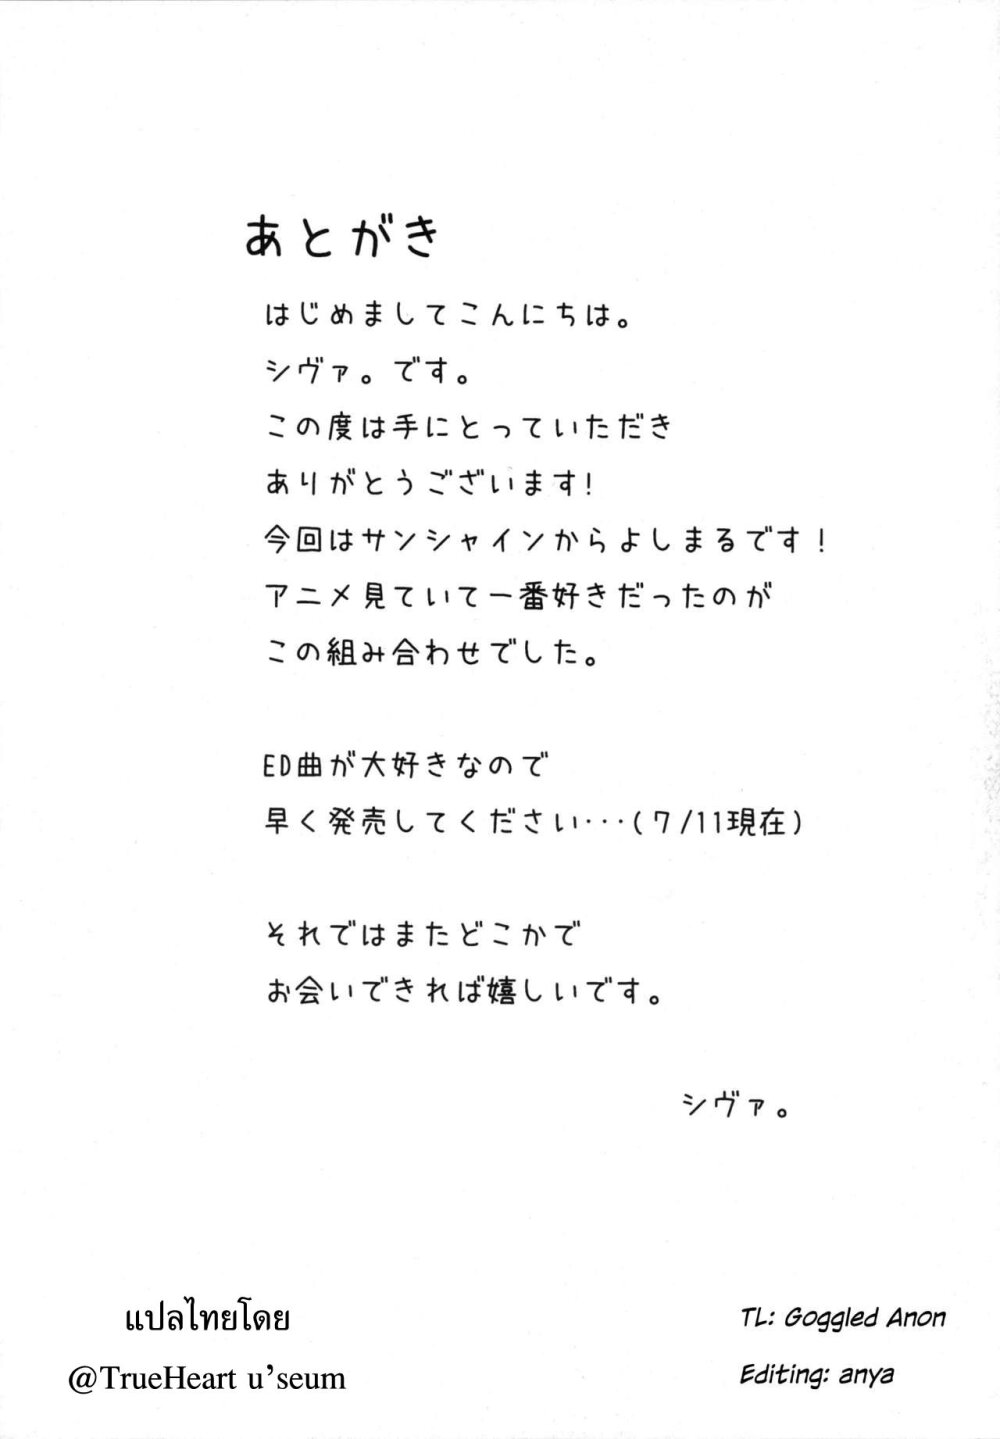 あとがき
はじめましてこんにちは。
シヴァ。です。
この度は手にとっていただき
ありがとうございます!
今回はサンシャインからよしまるです!
アニメ見ていて一番好きだったのが
この組み合わせでした。
ED曲が大好きなので
早く発売してください…(7/11現在)
それではまたどこかで
お会いできれば嬉しいです。
シヴァ。
แปลไทยโดย
@TrueHeart u’seum
TL: Goggled Anon
Editing: anya